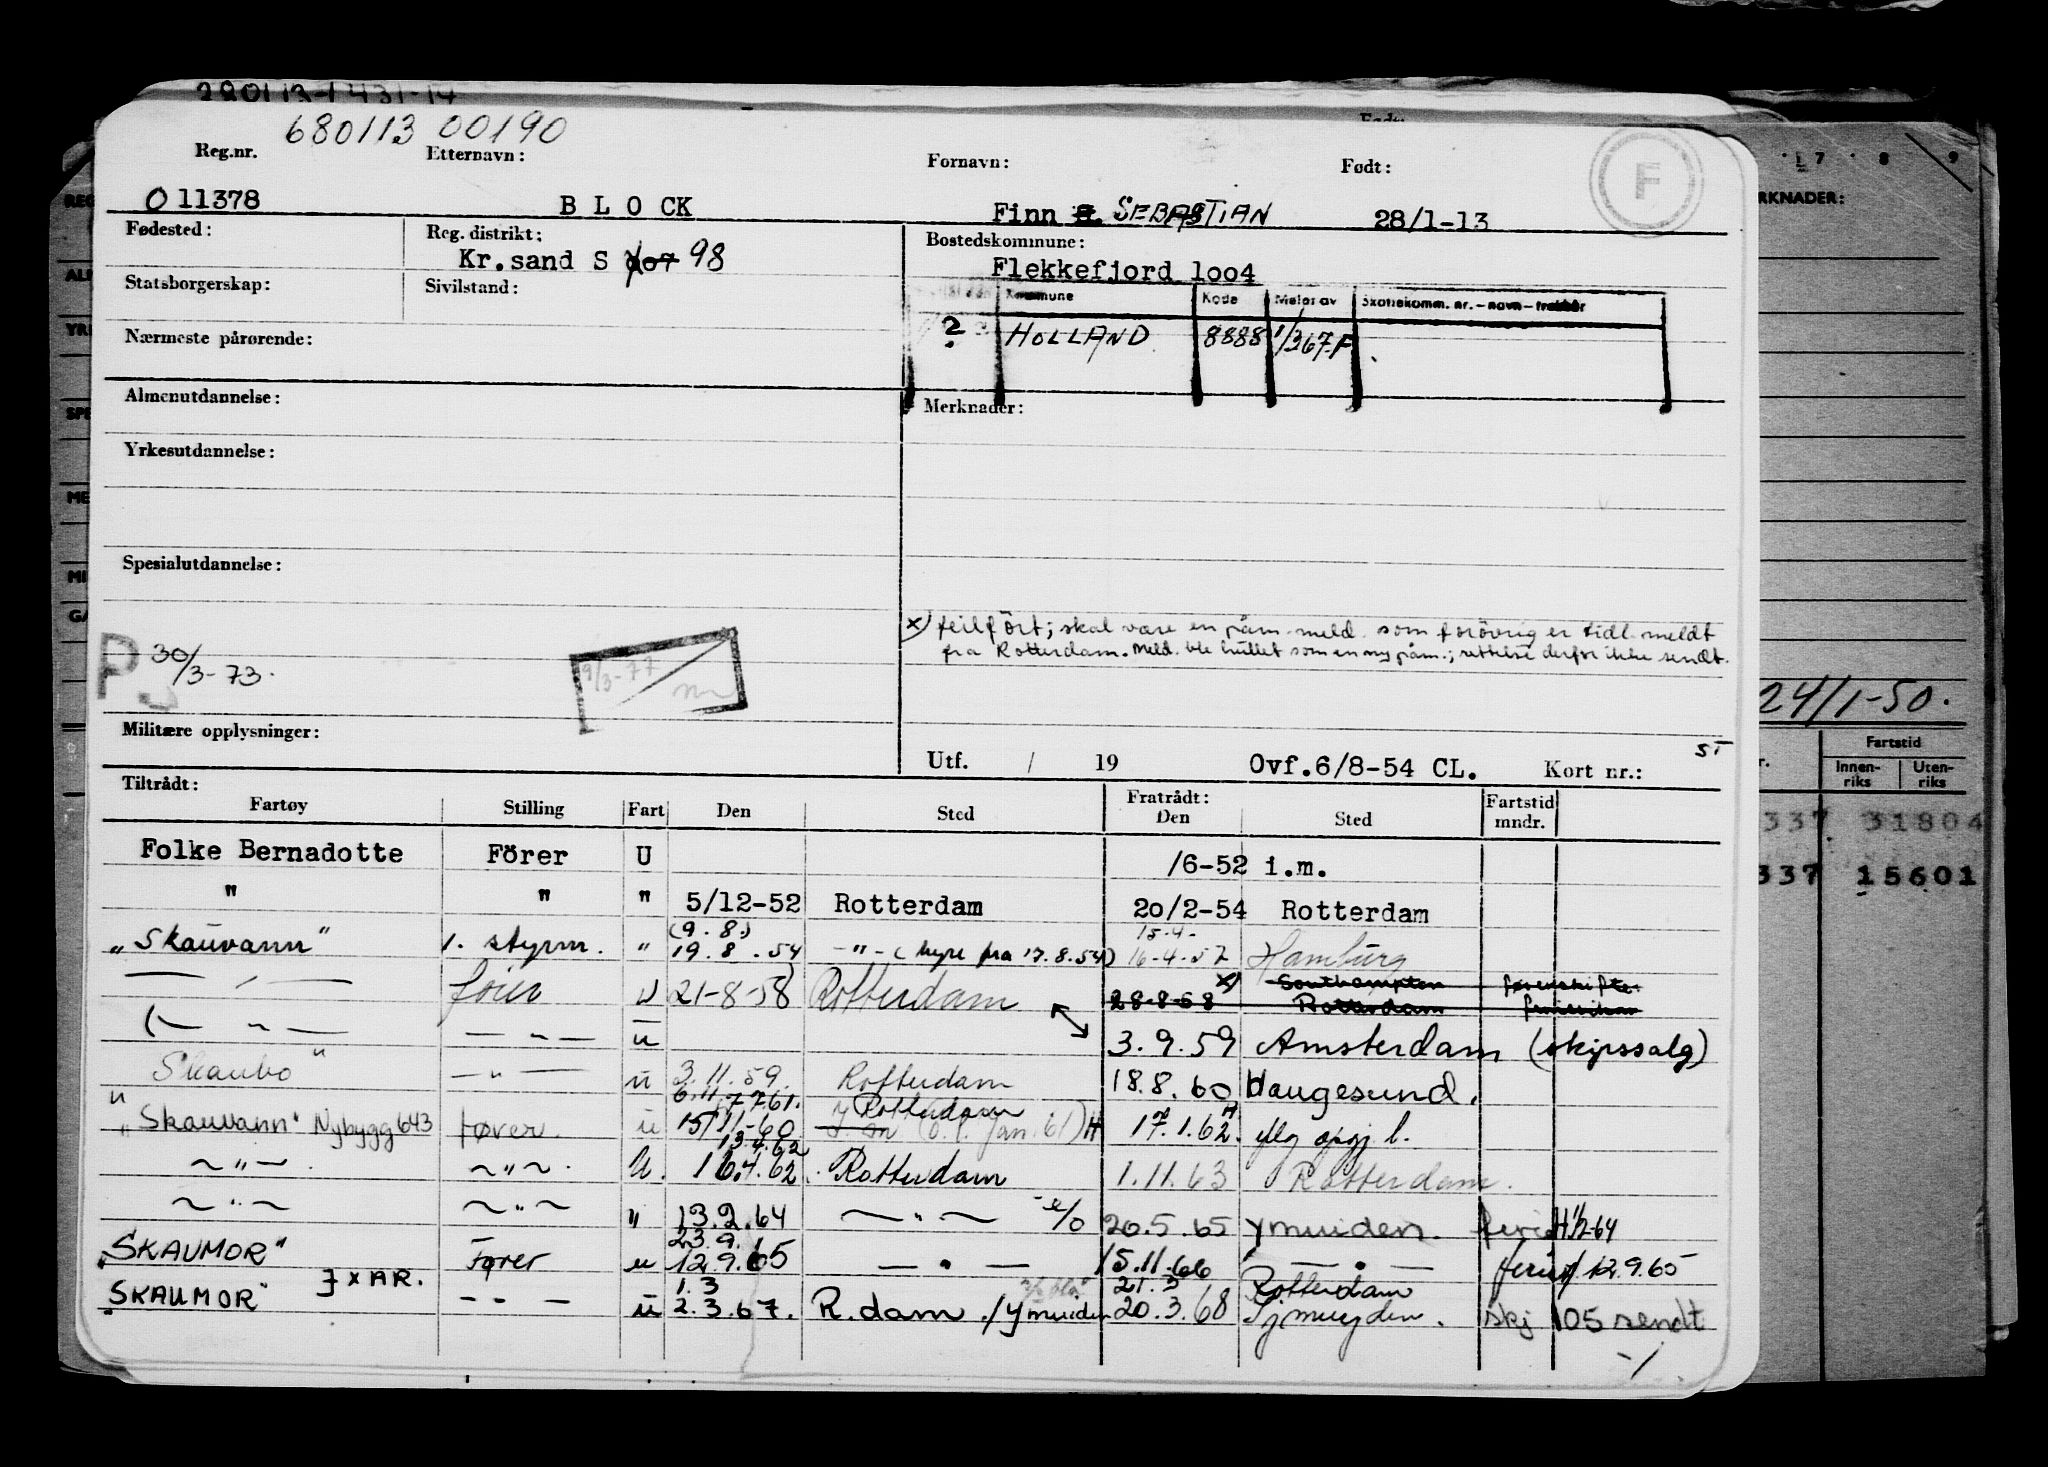 280113-1431-14
680113 00190
Reg.nr. Etternavn: Fornavn: Født:
F
011378 BLOCK Finn S. SEBASTIAN 28/1-13
Fødested: Reg. distrikt: Bostedskommune:
Kr.sand S 207 98 Flekkefjord 1004
Statsborgerskap: Sivilstand:
Kommune Kode Meldt av Skattekomm. nr. - navn - trekkår
2 HOLLAND 8888 1/367F
Nærmeste pårørende:
Almenutdannelse: Merknader:
Yrkesutdannelse:
Spesialutdannelse:
x) feilført; skal være en påm. meld. som forøvrig er tidl. meldt
fra Rotterdam. Meld. ble hullet som en ny påm.; rettelse derfor ikke sendt.
P 30/3-73.
9/3-77
24/1-50.
Militære opplysninger:
Utf. / 19 Ovf.6/8-54 CL. Kort nr.:
Tiltrådt: Fratrådt:
Fartøy Stilling Fart Den Sted Den Sted Fartstid mndr.
Fartstid
Innen-riks Uten-riks
337 31804
337 15601
Folke Bernadotte Förer U /6-52 i.m.
" " " 5/12-52 Rotterdam 20/2-54 Rotterdam
(9.8.) 15-4-
"Skauvann" 1. styrm. " 19.8.54 -"- (hyre fra 17.8.54) 16-4-57 Hamburg
— " — fører U 21-8-58 Rotterdam 28-8-58 x) Southampton Rotterdam førerskifte ferievikar
(— " — — " — u 3.9.59 Amsterdam (skipssalg)
"Skaubo" — " — u 3.11.59. Rotterdam 18.8.60 Haugesund.
6.11. 7.7.61. Rotterdam
"Skauvann" Nybygg 643 fører. u 15/11-60 (o.l. jan. 61) H 17.1.62. iflg oppgj. l.
13.4.62
~ " ~ . ~ " ~ . U. 16.4.62. Rotterdam 1.11.63 Rotterdam.
~ " ~ ~ " ~ " 13.2.64 ~ " ~ e/o 20.5.65 Ymuiden. ferie H 1/2-64
23.9.
"SKAUMOR" Fører u 12.9.65 — " — 15.11.66 — " — ferie 12.9.65
} x AR.
1.3 21.3 Rotterdam
"SKAUMOR" - " - u 2.3.67. R.dam ./Ymuiden 20.3.68 Ijmuyden. skj 105 sendt